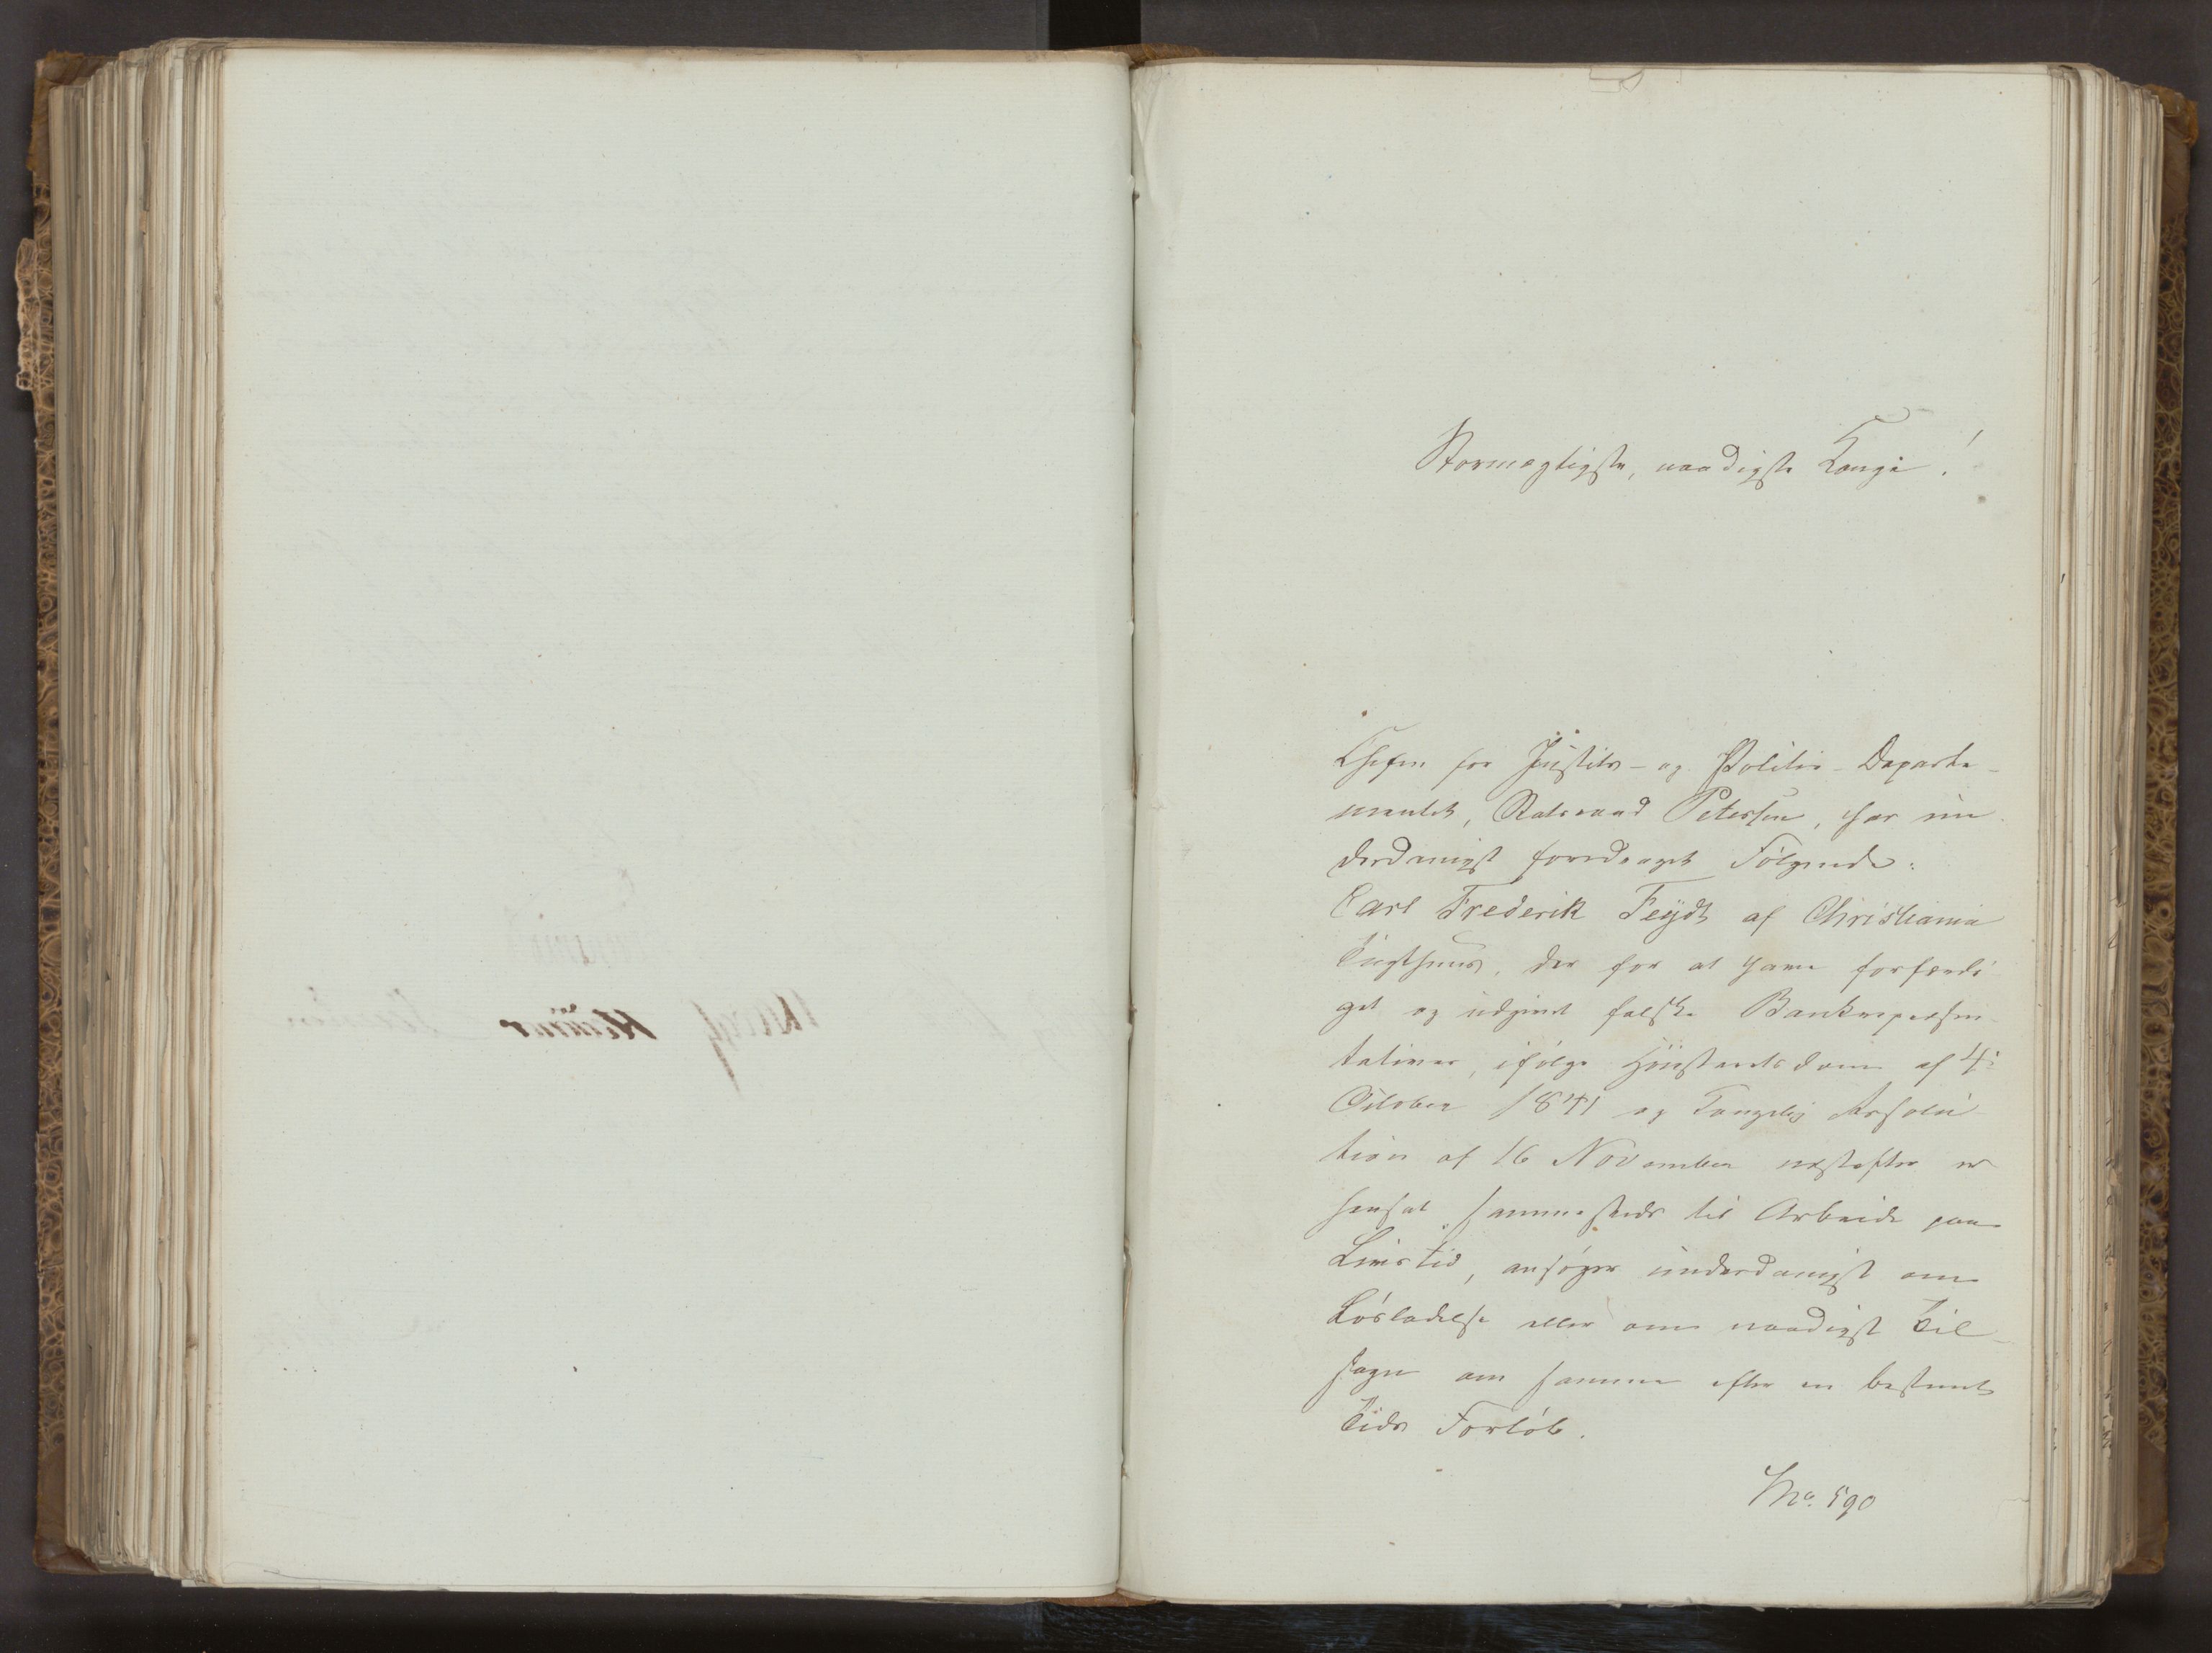 Stormægtigste, naadigste Konge!
Chefen for Justits- og Politie-Departe-
mentet, Statsraad Petersen, har un-
derdanigst foredraget Følgende:
Carl Frederik Feydt af Christiania
Tugthuus, der for at have forfærdi-
get og udgivet falske Bankrepræsen-
tativer, ifølge Høiesteretsdom af 4de
October 1841 og Kongelig Resolu-
tion af 16 November næstefter er
hensat sammesteds til Arbeide paa
Livstid, ansøger underdanigst om
Løsladelse eller om naadigst Til-
sagn om samme efter en bestemt
Tids Forløb.
No. 590